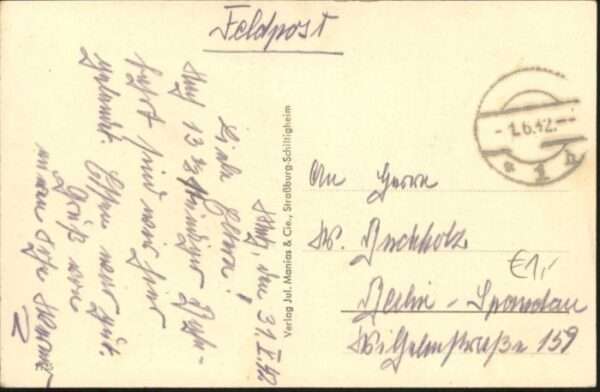 Feldpost
Metz, den 31.V.42
Liebe Eltern!
Nach 13 ½ stündiger Bahn-
fahrt sind wir hier
gelandet. Essen war gut.
Gruß von
Sohn Werner
Verlag Jul. Manias & Cie., Straßburg-Schiltigheim
-1.6.42.--
An Herrn
W. Buchholz
Berlin - Spandau
Wilhelmstraße 159
€1,-